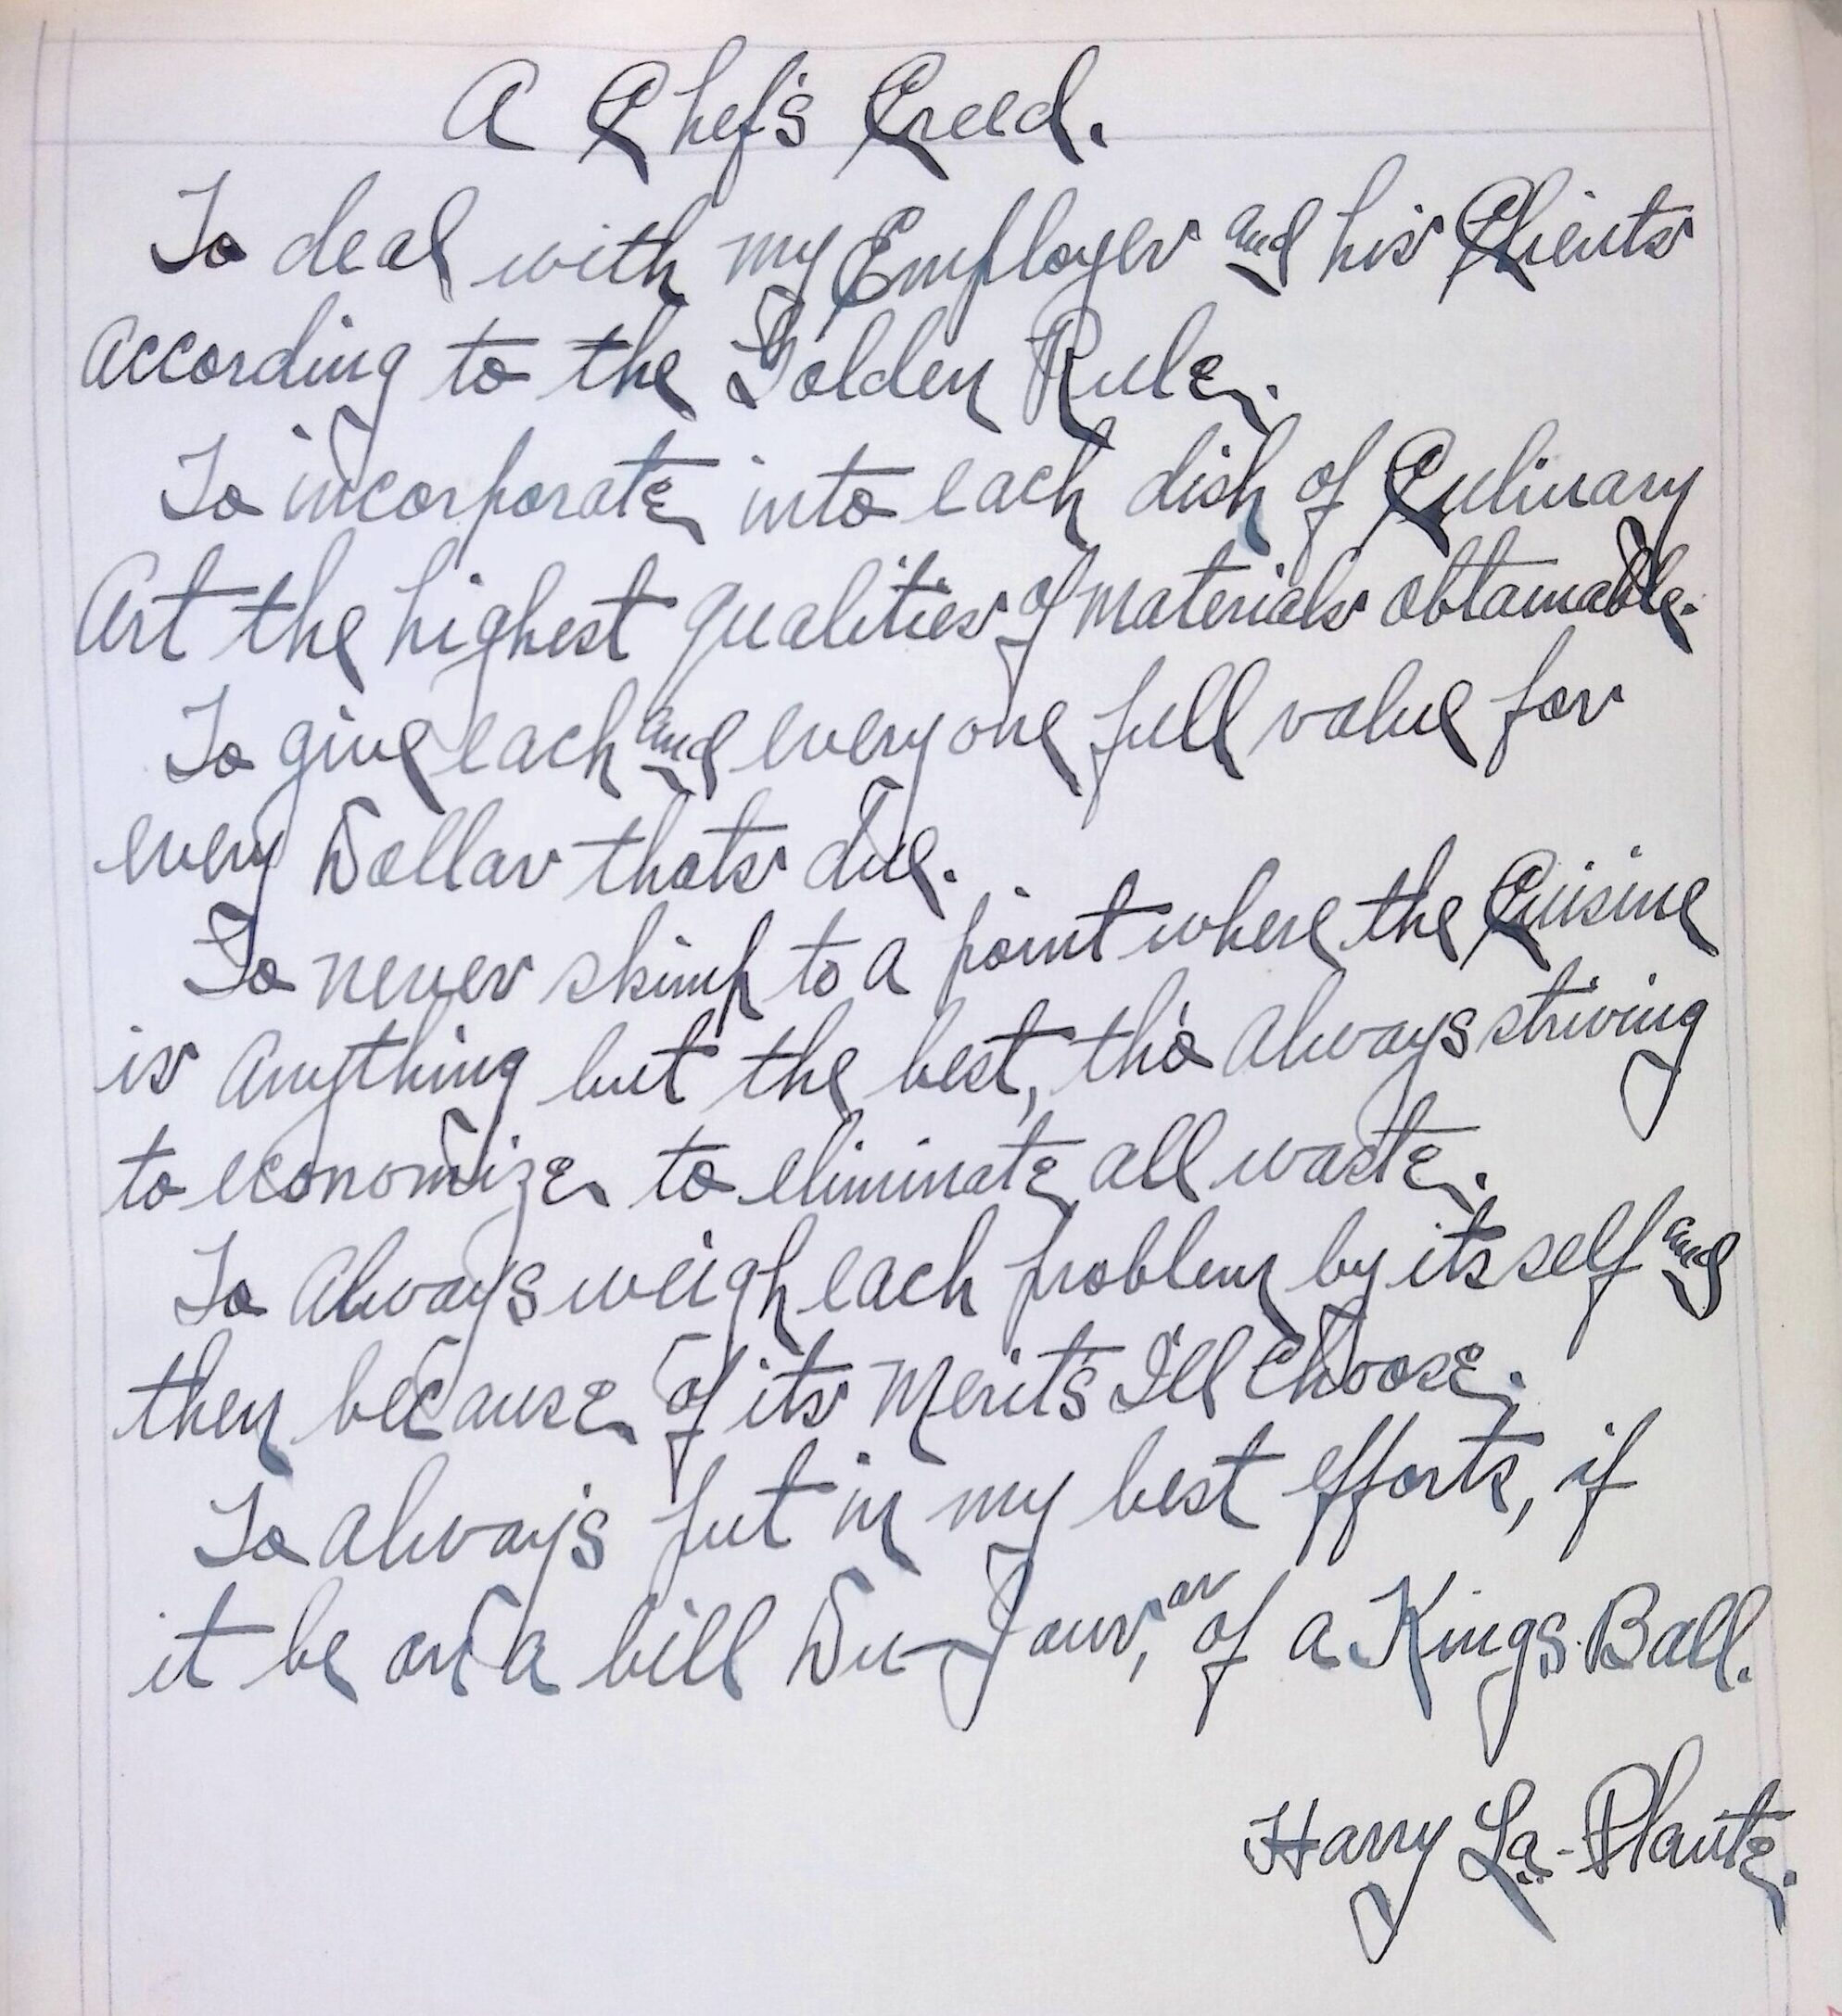 A Chef's Creed.
To deal with my Employer and his Clients
according to the Golden Rule.
To incorporate into each dish of Culinary
Art the highest qualities of materials obtainable.
To give each and every one full value for
every Dollar thats due.
To never skimp to a point where the Cuisine
is anything but the best, tho' always striving
to economize to eliminate all waste.
To always weigh each problem by its self and
then because of its merit's I'll choose.
To always put in my best efforts, if
it be on a bill Du-Jour, or of a Kings Ball.
Harry La-Plante.